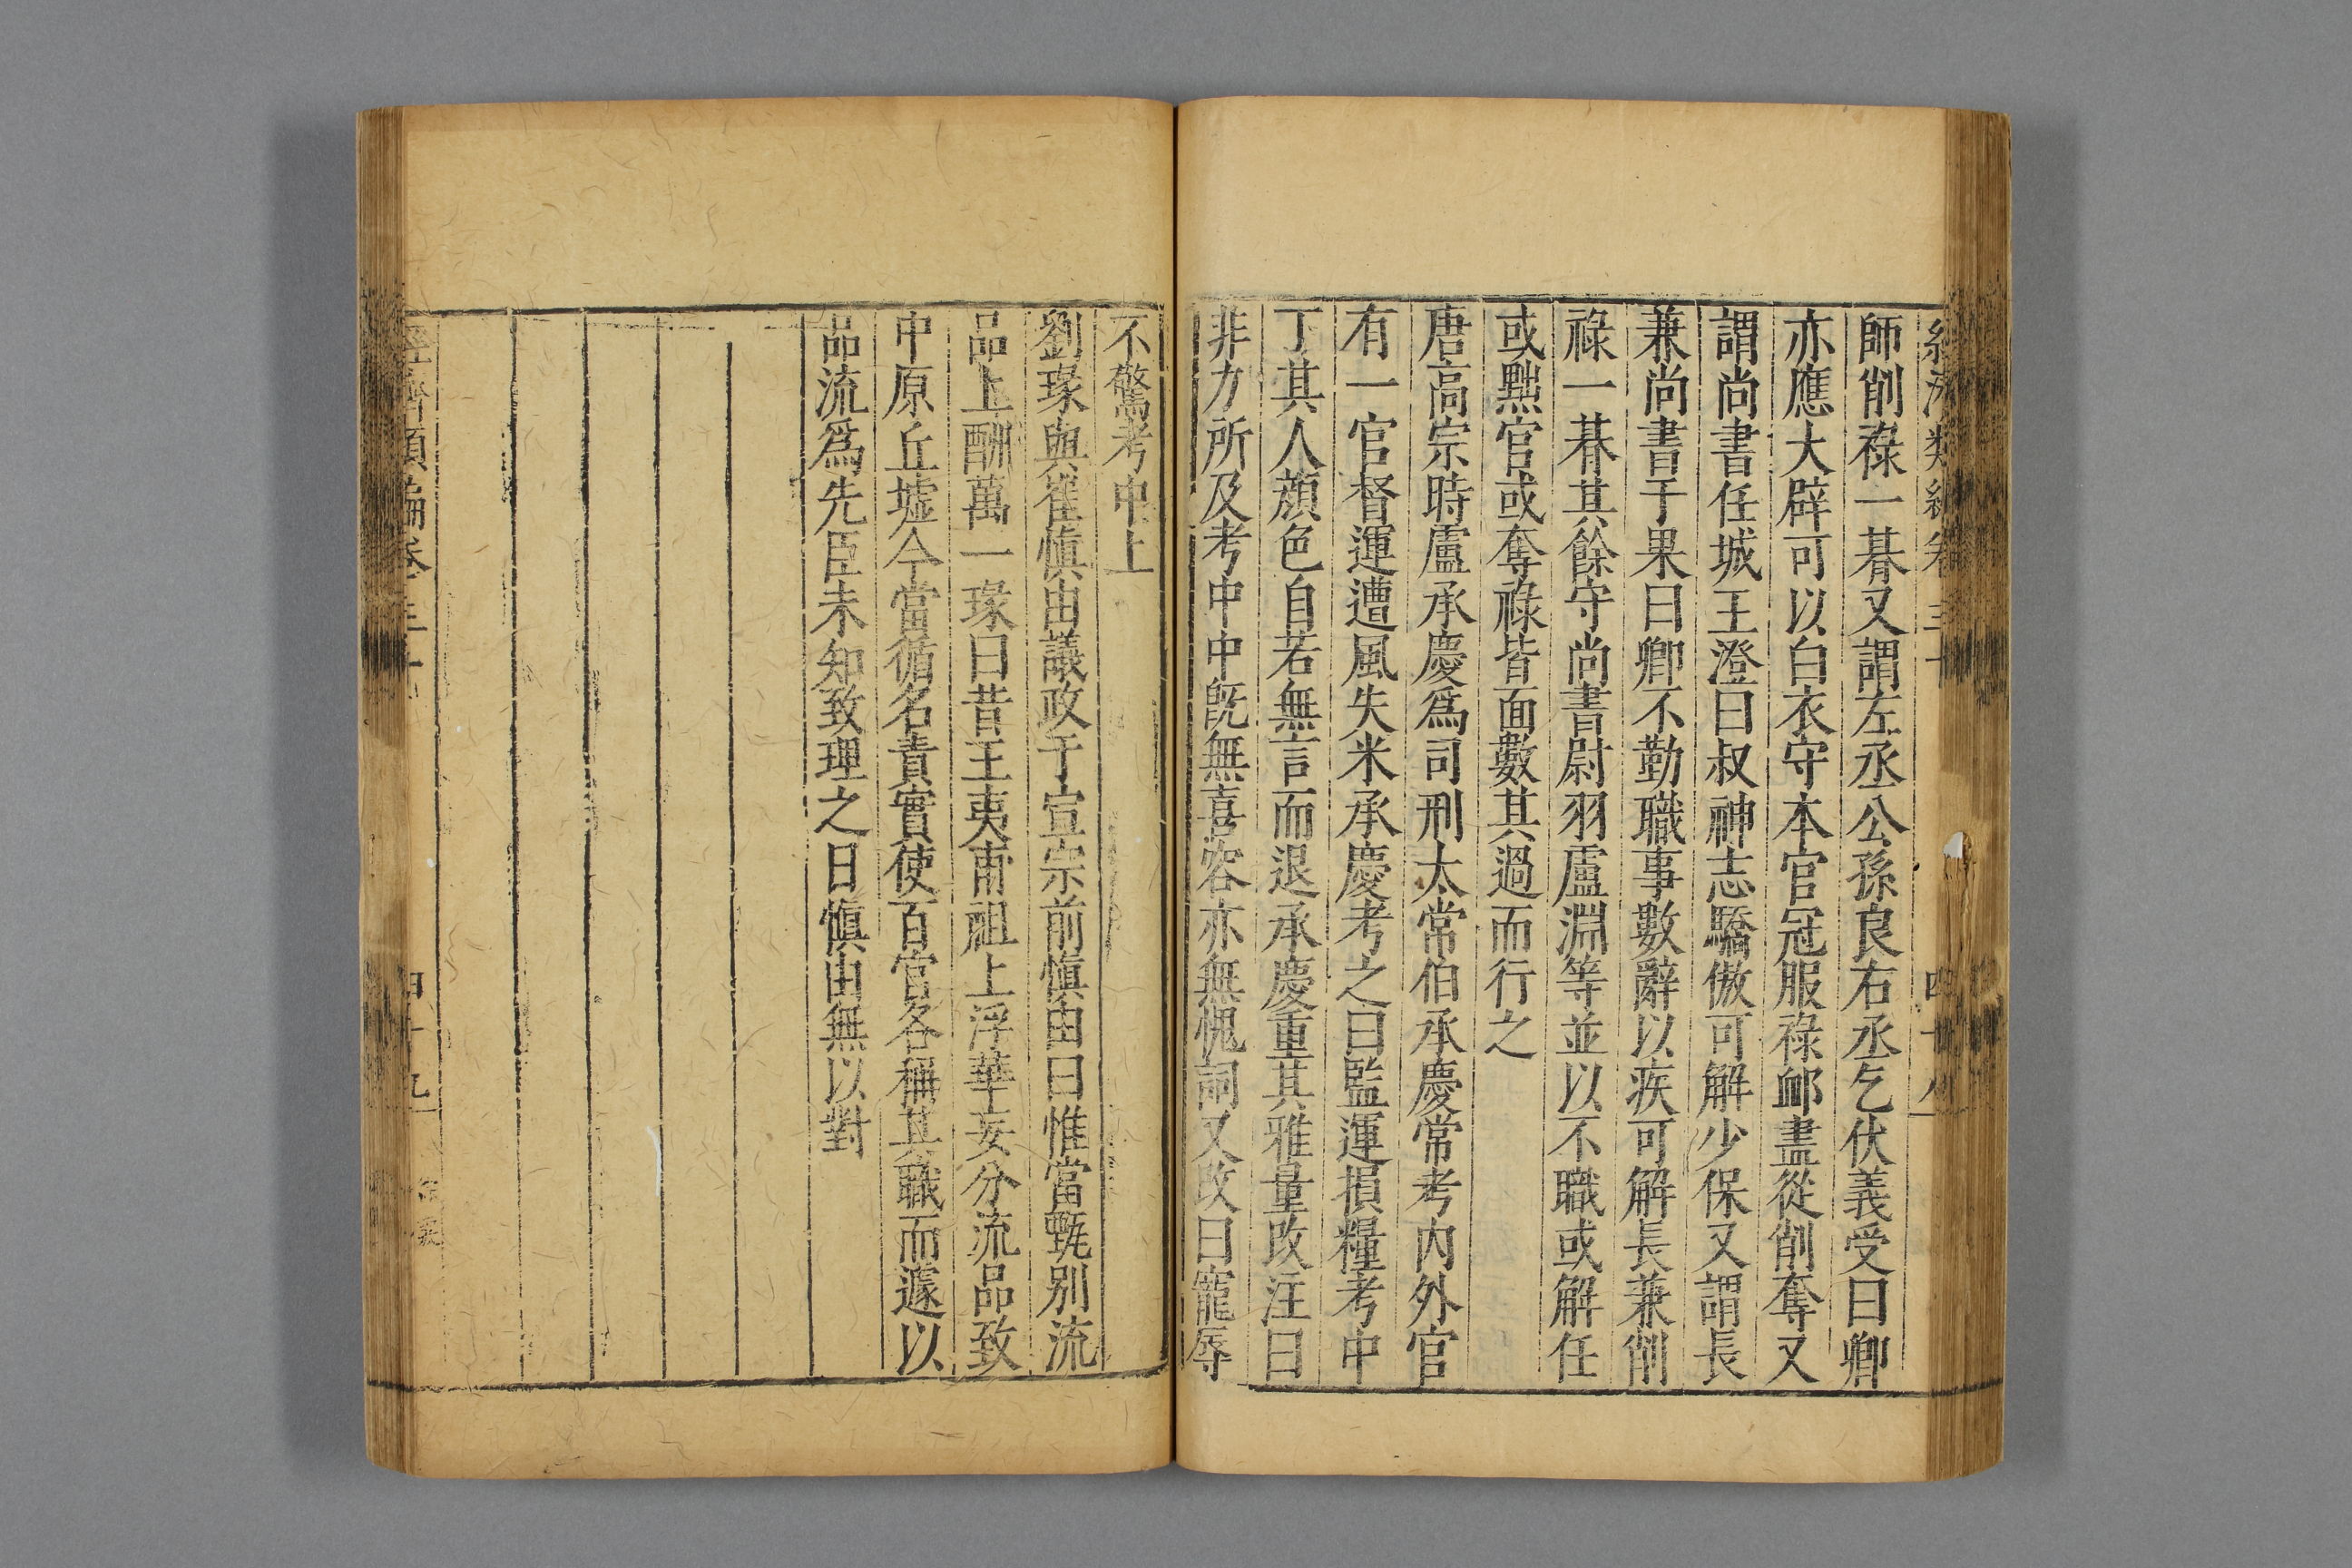 師削祿一朞又謂左丞公孫良右丞乞伏義受曰卿
亦應大辟可以白衣守本官冠服祿卹盡從削奪又
謂尚書任城王澄曰叔神志驕傲可解少保又謂長
兼尚書于果曰卿不勤職事數辭以疾可解長兼削
祿一朞其餘守尚書尉羽盧淵等並以不職或解任
或黜官或奪祿皆面數其過而行之
唐高宗時盧承慶爲司刑太常伯承慶常考內外官
有一官督運遭風失米承慶考之曰監運損糧考中
下其人顏色自若無言而退承慶重其雅量改注曰
非力所及考中中旣無喜容亦無愧詞又改曰寵辱
不驚考中上
劉瑑與崔愼由議政于宣宗前愼由曰惟當甄别流
品上酬萬一瑑曰昔王夷甫祖上浮華妄分流品致
中原丘墟今當循名責實使百官各稱其職而遽以
品流爲先臣未知致理之日愼由無以對
經濟類編卷三十 四十九